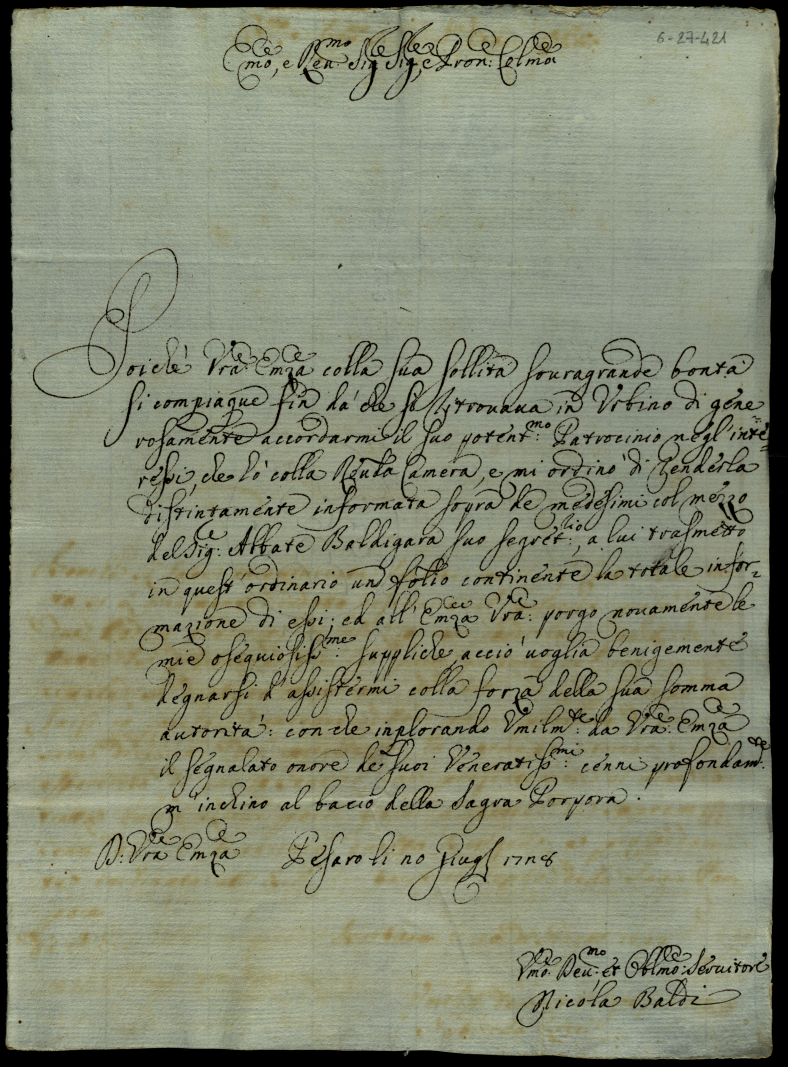 6-27-421
Emo, e Reu.mo Sig.re Sig.re, e Pron: Colmo
Poiche' Vra Emza colla sua sollita souragrande bontà
si compiaque fin da' che si ritrouaua in Vrbino di gene
rosamente accordarmi il suo potent.mo: Patrocinio negl'inte=
ressi, che hò colla Reuda Camera, e mi ordinò di renderla
distintamente informata sopra de medesimi col mezzo
del Sig.e Abbate Baldigara suo segret.rio, a lui trasmetto
in quest'ordinario un folio continente la totale infor=
mazione di essi; ed all'Emza Vra: porgo nouamente le
mie osequiosiss.me: suppliche, acciò uoglia benigemente
degnarsi d'assistermi colla forza della sua somma
autorità: con che inplorando Vmilm.te: da Vra: Emza
il segnalato onore de suoi Veneratiss.mi: cenni profondam.te:
m'inchino al bacio della Sagra Porpora.
D: Vra Emza Pesaro li 20 Giug 1728
Vmo: Deu.mo: et Oblmo: Seruitore
Nicola Baldi